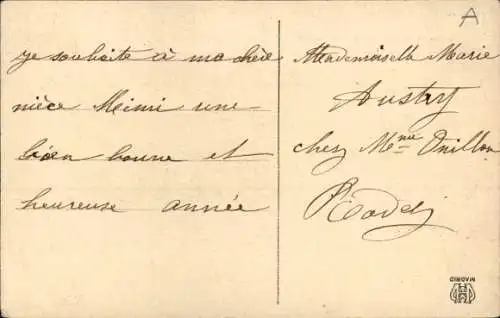 Je souhaite à ma chère
nièce Mimi une
bien bonne et
heureuse année
A
Mademoiselle Marie
Austry
chez Mme
Rodez
MADRID